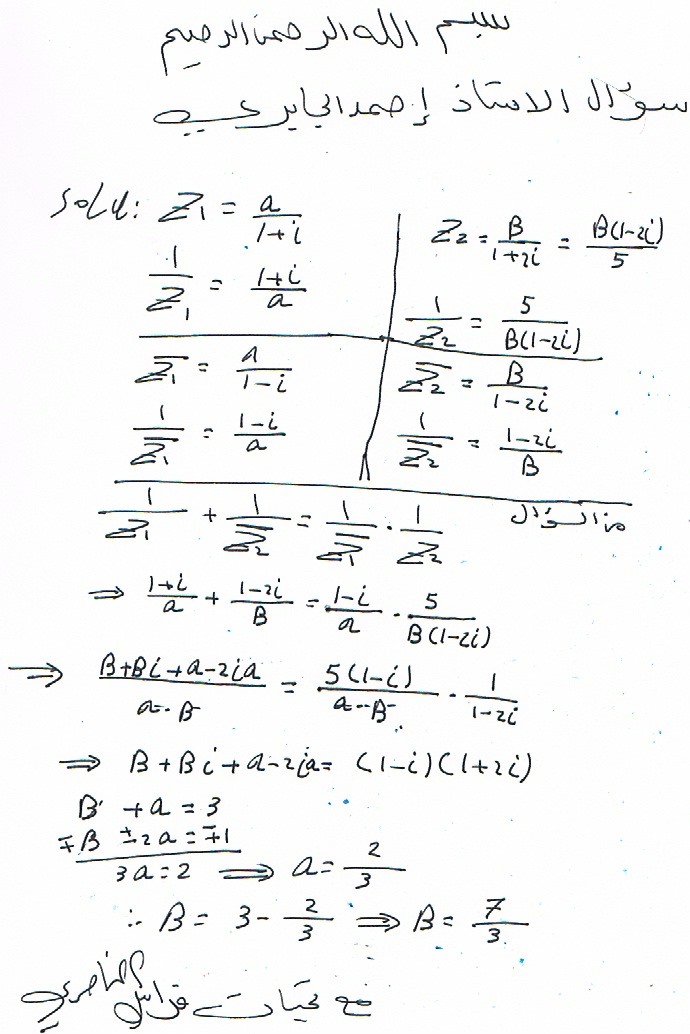 بسم الله الرحمن الرحيم
سؤال الاستاذ إحمد الجابري
Solu: Z₁ = a/(1+i)
1/Z₁ = (1+i)/a
Z₂ = B/(1+2i) = B(1-2i)/5
1/Z₂ = 5/(B(1-2i))
Z̅₁ = a/(1-i)
1/Z̅₁ = (1-i)/a
Z̅₂ = B/(1-2i)
1/Z̅₂ = (1-2i)/B
من السؤال
1/Z₁ + 1/Z̅₂ = 1/Z̅₁ · 1/Z₂
⇒ (1+i)/a + (1-2i)/B = (1-i)/a · 5/(B(1-2i))
⇒ (B+Bi+a-2ia)/(a·B) = 5(1-i)/(a·B) · 1/(1-2i)
⇒ B+Bi+a-2ia = (1-i)(1+2i)
B +a = 3
∓B ±2a = ∓1
3a=2 ⇒ a = 2/3
∴ B = 3 - 2/3 ⇒ B = 7/3
مع تحيات فراس الناصري